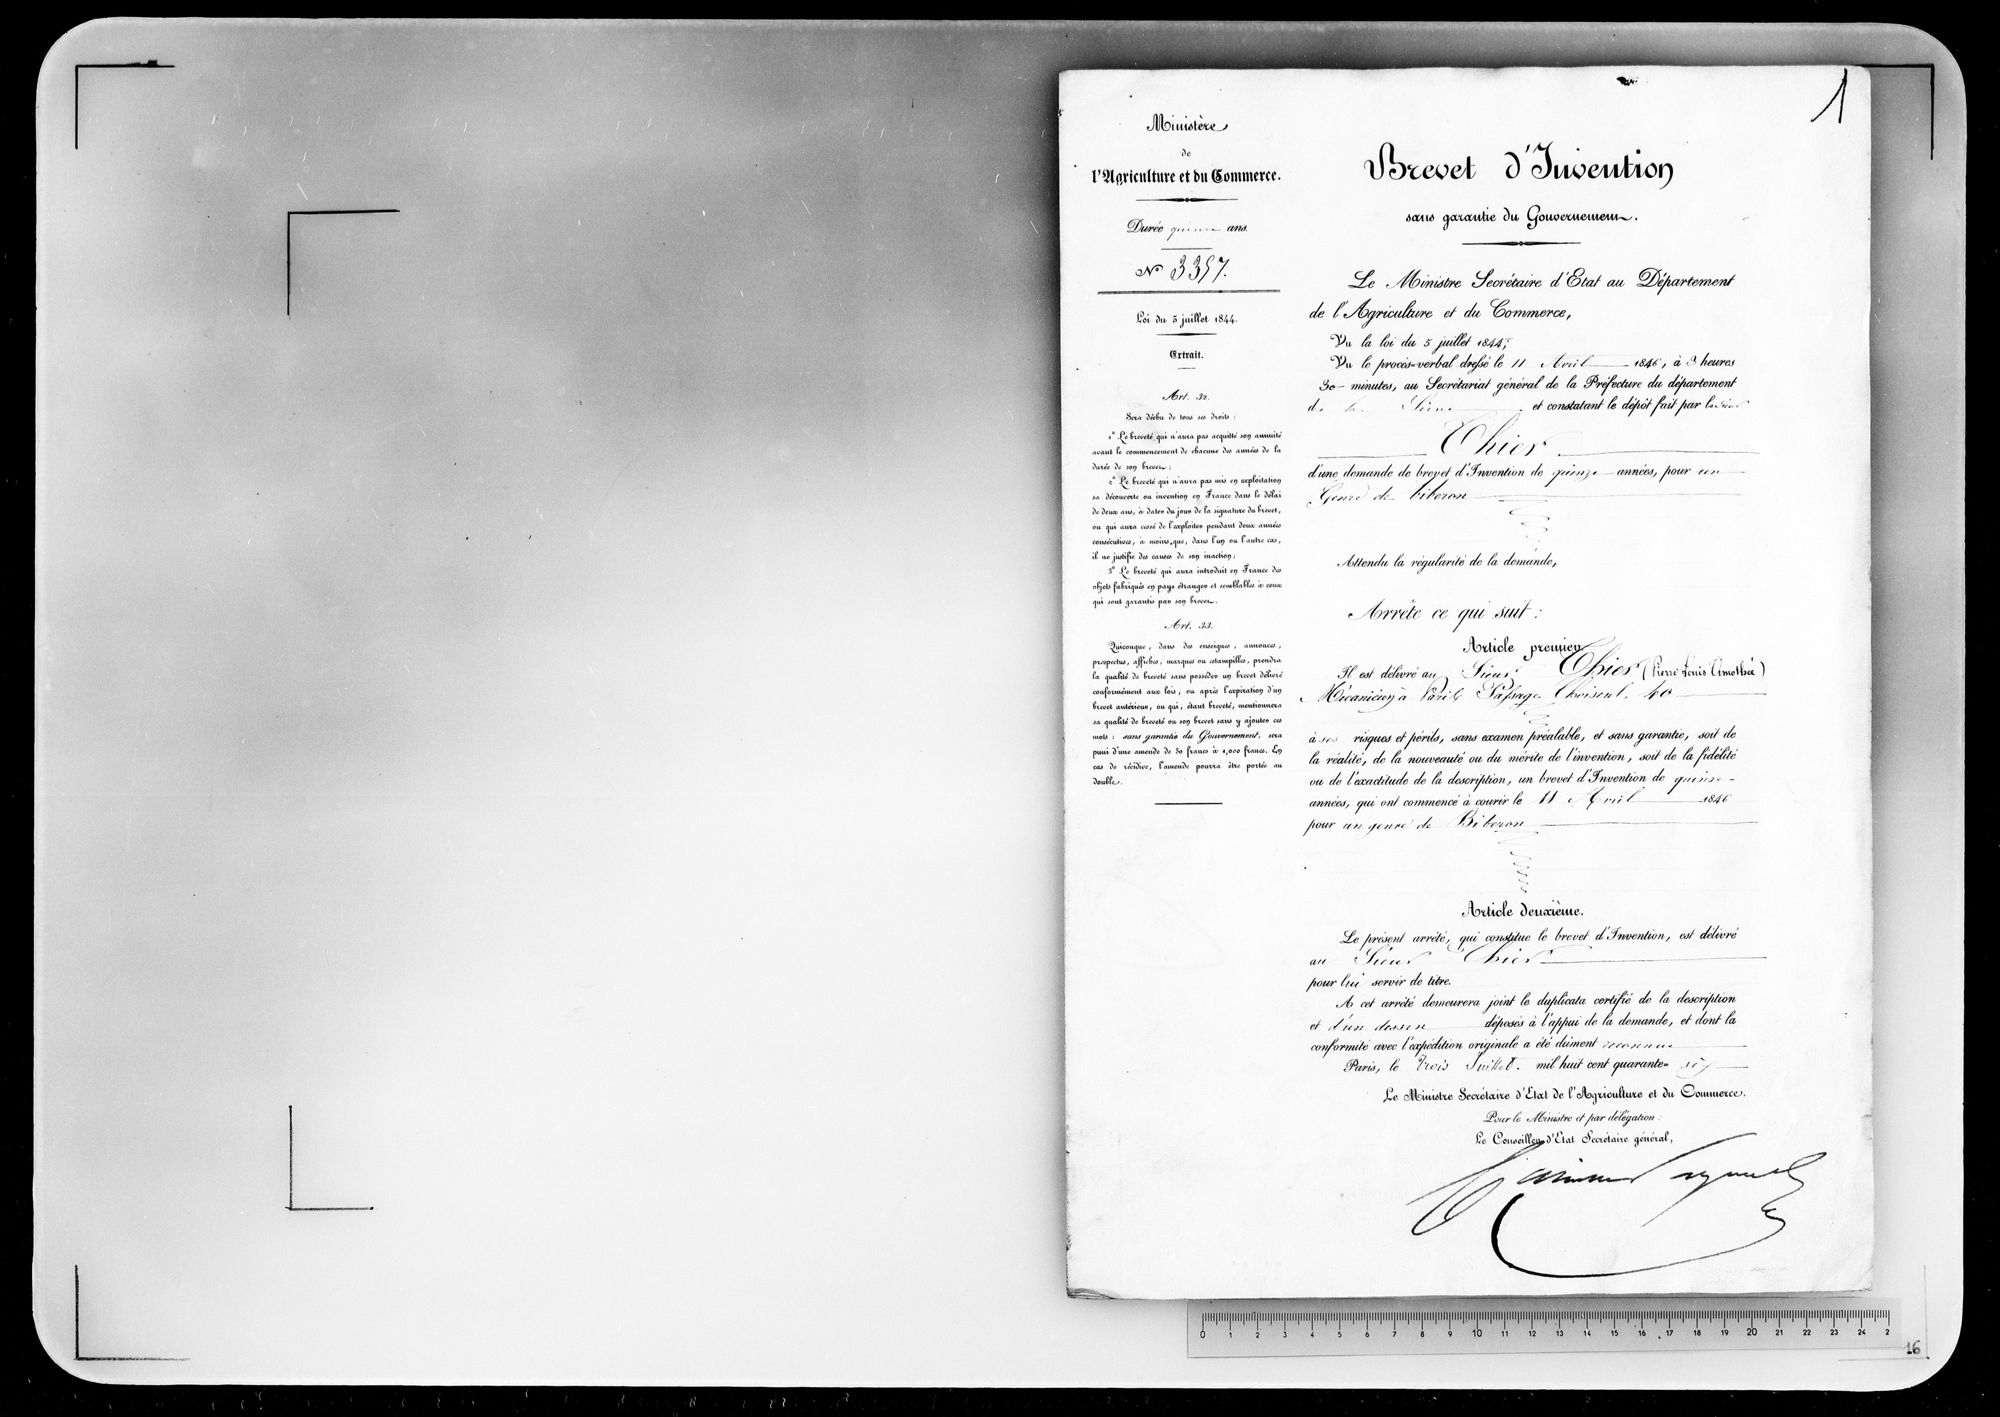 Ministère
de
l'Agriculture et du Commerce.
Durée quinze ans.
N° 3357.
Loi du 5 juillet 1844.
Extrait.
Art. 32.
Sera déchu de tous ses droits :
1° Le breveté qui n'aura pas acquitté son annuité
avant le commencement de chacune des années de la
durée de son brevet ;
2° Le breveté qui n'aura pas mis en exploitation
sa découverte ou invention en France dans le délai
de deux ans, à dater du jour de la signature du brevet,
ou qui aura cessé de l'exploiter pendant deux années
consécutives, à moins que, dans l'un ou l'autre cas,
il ne justifie des causes de son inaction ;
3° Le breveté qui aura introduit en France des
objets fabriqués en pays étranger et semblables à ceux
qui sont garantis par son brevet.
Art. 33.
Quiconque, dans des enseignes, annonces,
prospectus, affiches, marques ou estampilles, prendra
la qualité de breveté sans posséder un brevet délivré
conformément aux lois, ou après l'expiration d'un
brevet antérieur, ou qui, étant breveté, mentionnera
sa qualité de breveté ou son brevet sans y ajouter ces
mots : sans garantie du Gouvernement, sera
puni d'une amende de 50 francs à 1,000 francs. En
cas de récidive, l'amende pourra être portée au
double.
1
Brevet d'Invention
sans garantie du Gouvernement.
Le Ministre Secrétaire d'Etat au Département
de l'Agriculture et du Commerce,
Vu la loi du 5 juillet 1844 ;
Vu le procès-verbal dressé le 11 Avril 1846, à 3 heures
30 minutes, au Secrétariat général de la Préfecture du département
de la Seine et constatant le dépôt fait par le Sieur
Thier
d'une demande de brevet d'Invention de quinze années, pour un
Genre de biberon
Attendu la régularité de la demande,
Arrête ce qui suit :
Article premier.
Il est délivré au Sieur Thier (Pierre Louis Timothée)
Mécanicien à Paris Passage Choiseul, 40
à ses risques et périls, sans examen préalable, et sans garantie, soit de
la réalité, de la nouveauté ou du mérite de l'invention, soit de la fidélité
ou de l'exactitude de la description, un brevet d'Invention de quinze
années, qui ont commencé à courir le 11 Avril 1846
pour un genre de Biberon
Article deuxième.
Le présent arrêté, qui constitue le brevet d'Invention, est délivré
au Sieur Thier
pour lui servir de titre.
A cet arrêté demeurera joint le duplicata certifié de la description
et d'un dessin déposés à l'appui de la demande, et dont la
conformité avec l'expédition originale a été dûment reconnue
Paris, le trois Juillet mil huit cent quarante-six
Le Ministre Secrétaire d'Etat de l'Agriculture et du Commerce.
Pour le Ministre et par délégation :
Le Conseiller d'Etat Secrétaire général,
0 1 2 3 4 5 6 7 8 9 10 11 12 13 14 15 16 17 18 19 20 21 22 23 24 2
16